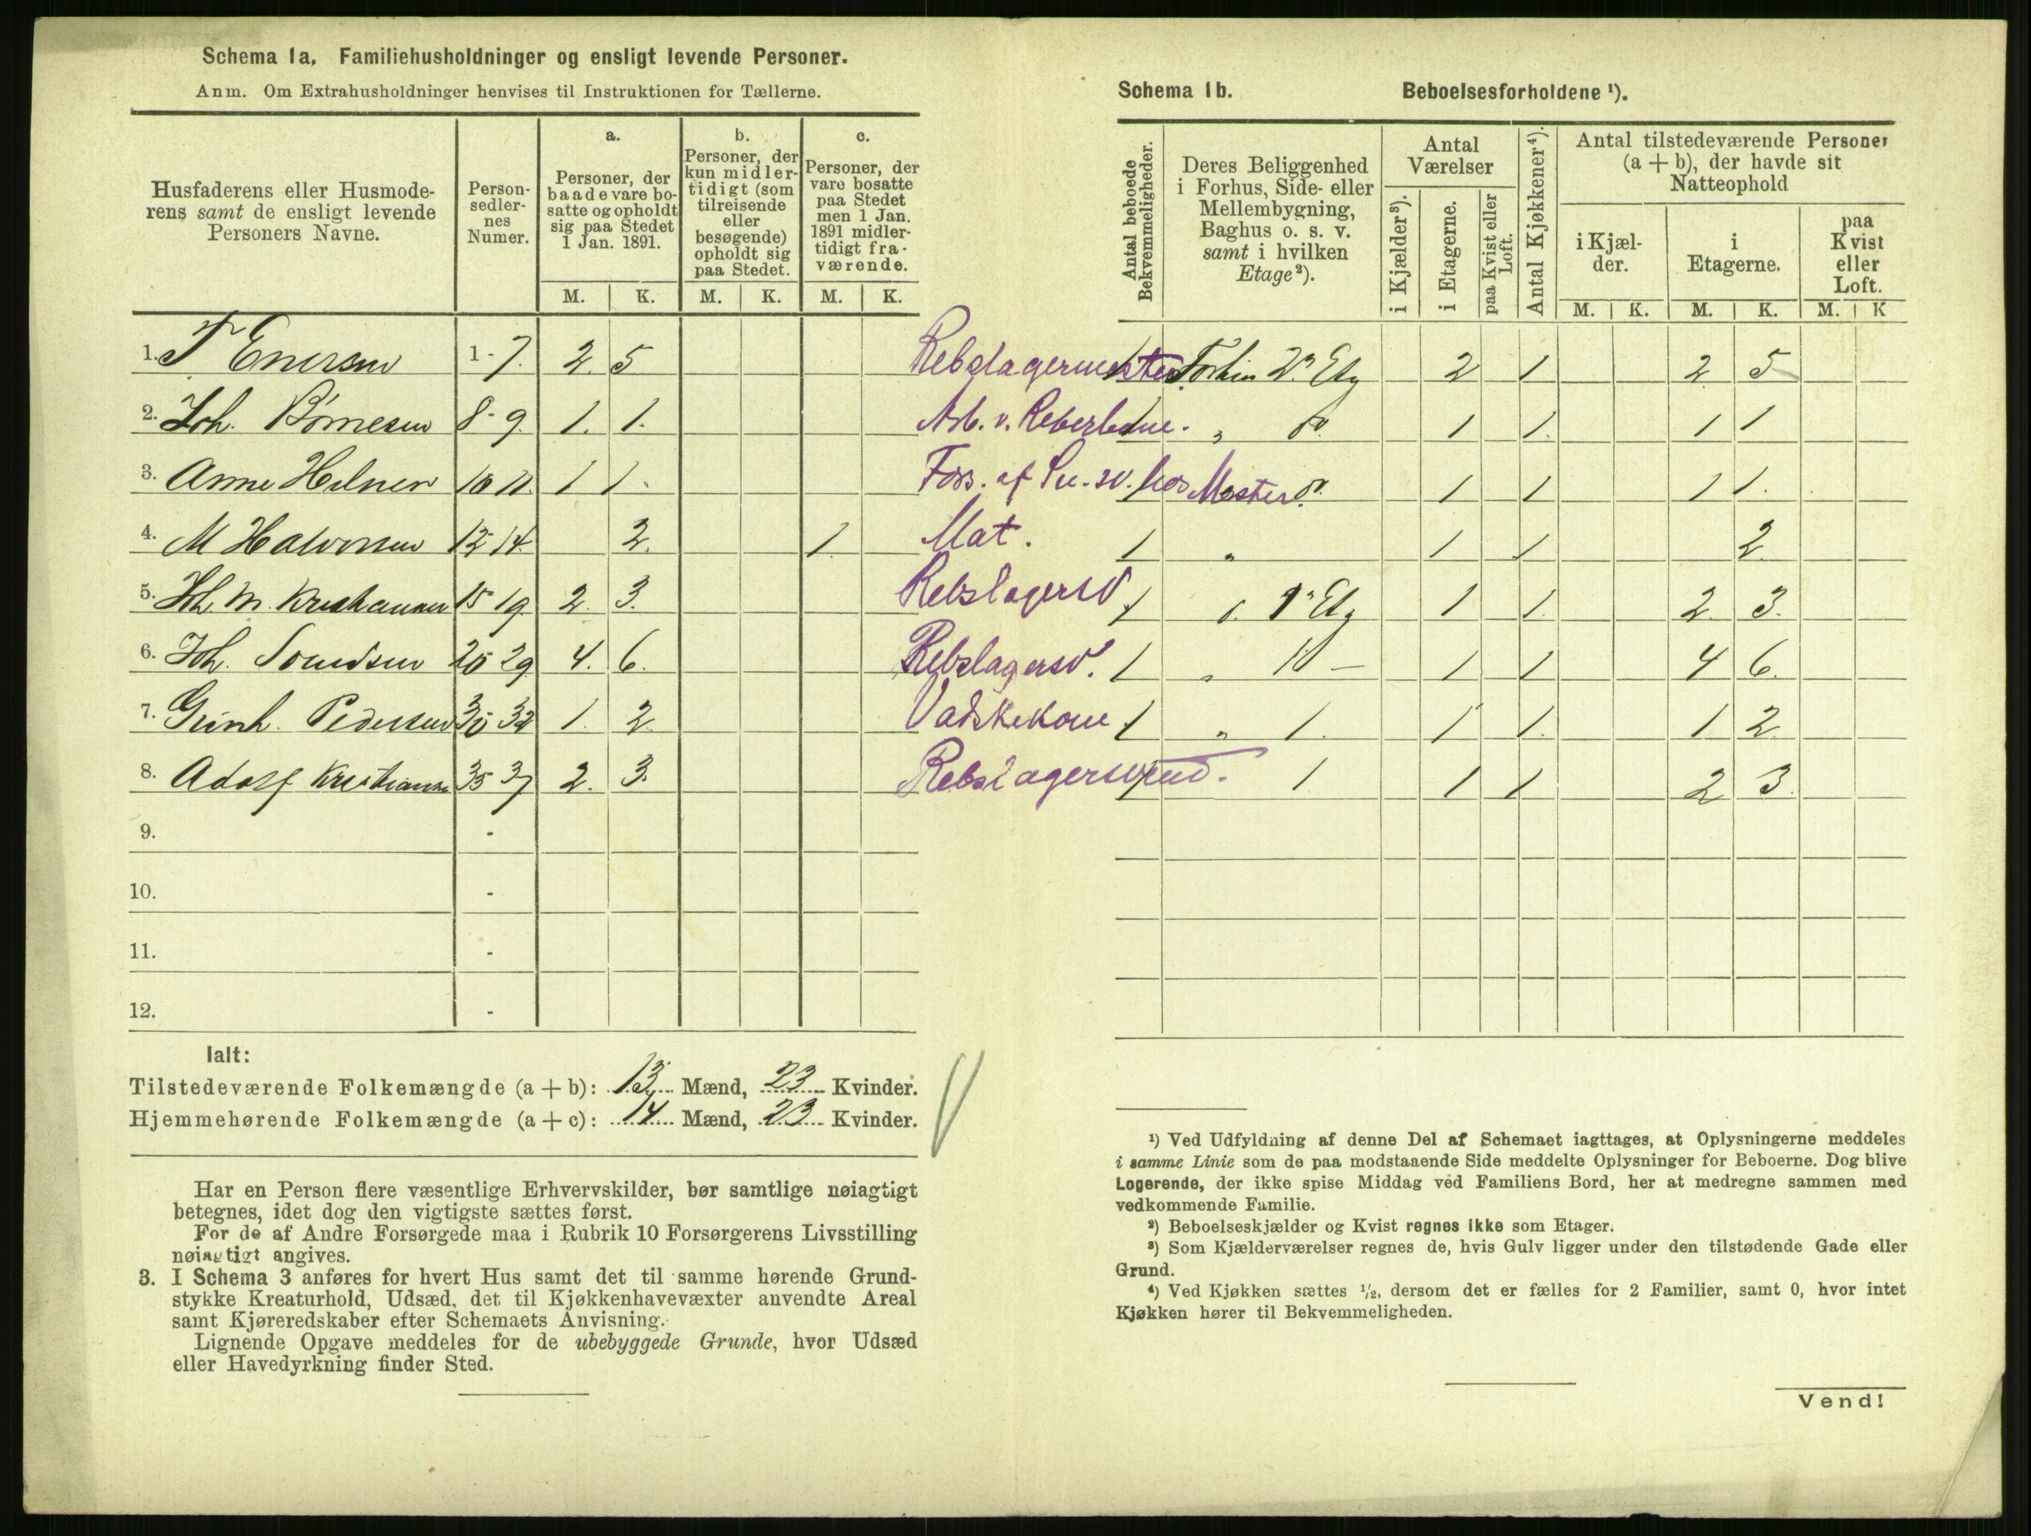 Schema 1a. Familiehusholdninger og ensligt levende Personer.
Anm. Om Extrahusholdninger henvises til Instruktionen for Tællerne.
Husfaderens eller Husmode-
rens samt de ensligt levende
Personers Navne.
Person-
sedler-
nes
Numer.
a.
Personer, der
baade vare bo-
satte og opholdt
sig paa Stedet
1 Jan. 1891.
b.
Personer, der
kun midler-
tidigt (som
tilreisende
eller
besøgende)
opholdt sig
paa Stedet.
c.
Personer, der
vare bosatte
paa Stedet
men 1 Jan.
1891 midler-
tidigt fra-
værende.
M. K. M. K. M. K.
1. T Enersen 1-7. 2. 5 Rebslagermester.
2. Joh. Børnesen 8-9. 1. 1. Arb. v. Reberbane.
3. Anne Helnen 10 11. 1 1 Fors. af hos Mester.
4. M Halvorsen 12 14. 2. 1. Mat.
5. Joh M. Kristiansen 15 19. 2. 3. Rebslagersv.
6. Joh. 20 29 4. 6. Rebslagersv.
7. Pedersen 30 32 1. 2. Vadskekone
8. Adolf Kristiansen 35 37 2. 3. Rebslagersvend.
9. -
10. -
11. -
12. -
Ialt:
Tilstedeværende Folkemængde (a + b): 13 Mænd, 23 Kvinder.
Hjemmehørende Folkemængde (a + c): 14 Mænd, 23 Kvinder.
Har en Person flere væsentlige Erhvervskilder, bør samtlige nøiagtigt
betegnes, idet dog den vigtigste sættes først.
For de af Andre Forsørgede maa i Rubrik 10 Forsørgerens Livsstilling
nøiagtigt angives.
3. I Schema 3 anføres for hvert Hus samt det til samme hørende Grund-
stykke Kreaturhold, Udsæd, det til Kjøkkenhavevæxter anvendte Areal
samt Kjøreredskaber efter Schemaets Anvisning.
Lignende Opgave meddeles for de ubebyggede Grunde, hvor Udsæd
eller Havedyrkning finder Sted.
Schema 1b. Beboelsesforholdene ¹).
Antal beboede
Bekvemmeligheder.
Deres Beliggenhed
i Forhus, Side- eller
Mellembygning,
Baghus o. s. v.
samt i hvilken
Etage²).
Antal
Værelser
i Kjælder³).
i Etagerne.
paa Kvist eller
Loft.
Antal Kjøkkener⁴).
Antal tilstedeværende Personer
(a + b), der havde sit
Natteophold
i Kjæl-
der.
i
Etagerne.
paa
Kvist
eller
Loft.
M. K. M. K. M. K
1 2n Etg 2 1 2 5
1 " 1 1. 1 1
1 1 1 1 1.
1 " 1 1 2
1 1n Etg 1 1. 2 3.
1 " 1 1 4 6.
1 " 1. 1 1. 1 2
1 1 1 1 2 3
¹) Ved Udfyldning af denne Del af Schemaet iagttages, at Oplysningerne meddeles
i samme Linie som de paa modstaaende Side meddelte Oplysninger for Beboerne. Dog blive
Logerende, der ikke spise Middag ved Familiens Bord, her at medregne sammen med
vedkommende Familie.
²) Beboelseskjælder og Kvist regnes ikke som Etager.
³) Som Kjælderværelser regnes de, hvis Gulv ligger under den tilstødende Gade eller
Grund.
⁴) Ved Kjøkken sættes ½, dersom det er fælles for 2 Familier, samt 0, hvor intet
Kjøkken hører til Bekvemmeligheden.
Vend!